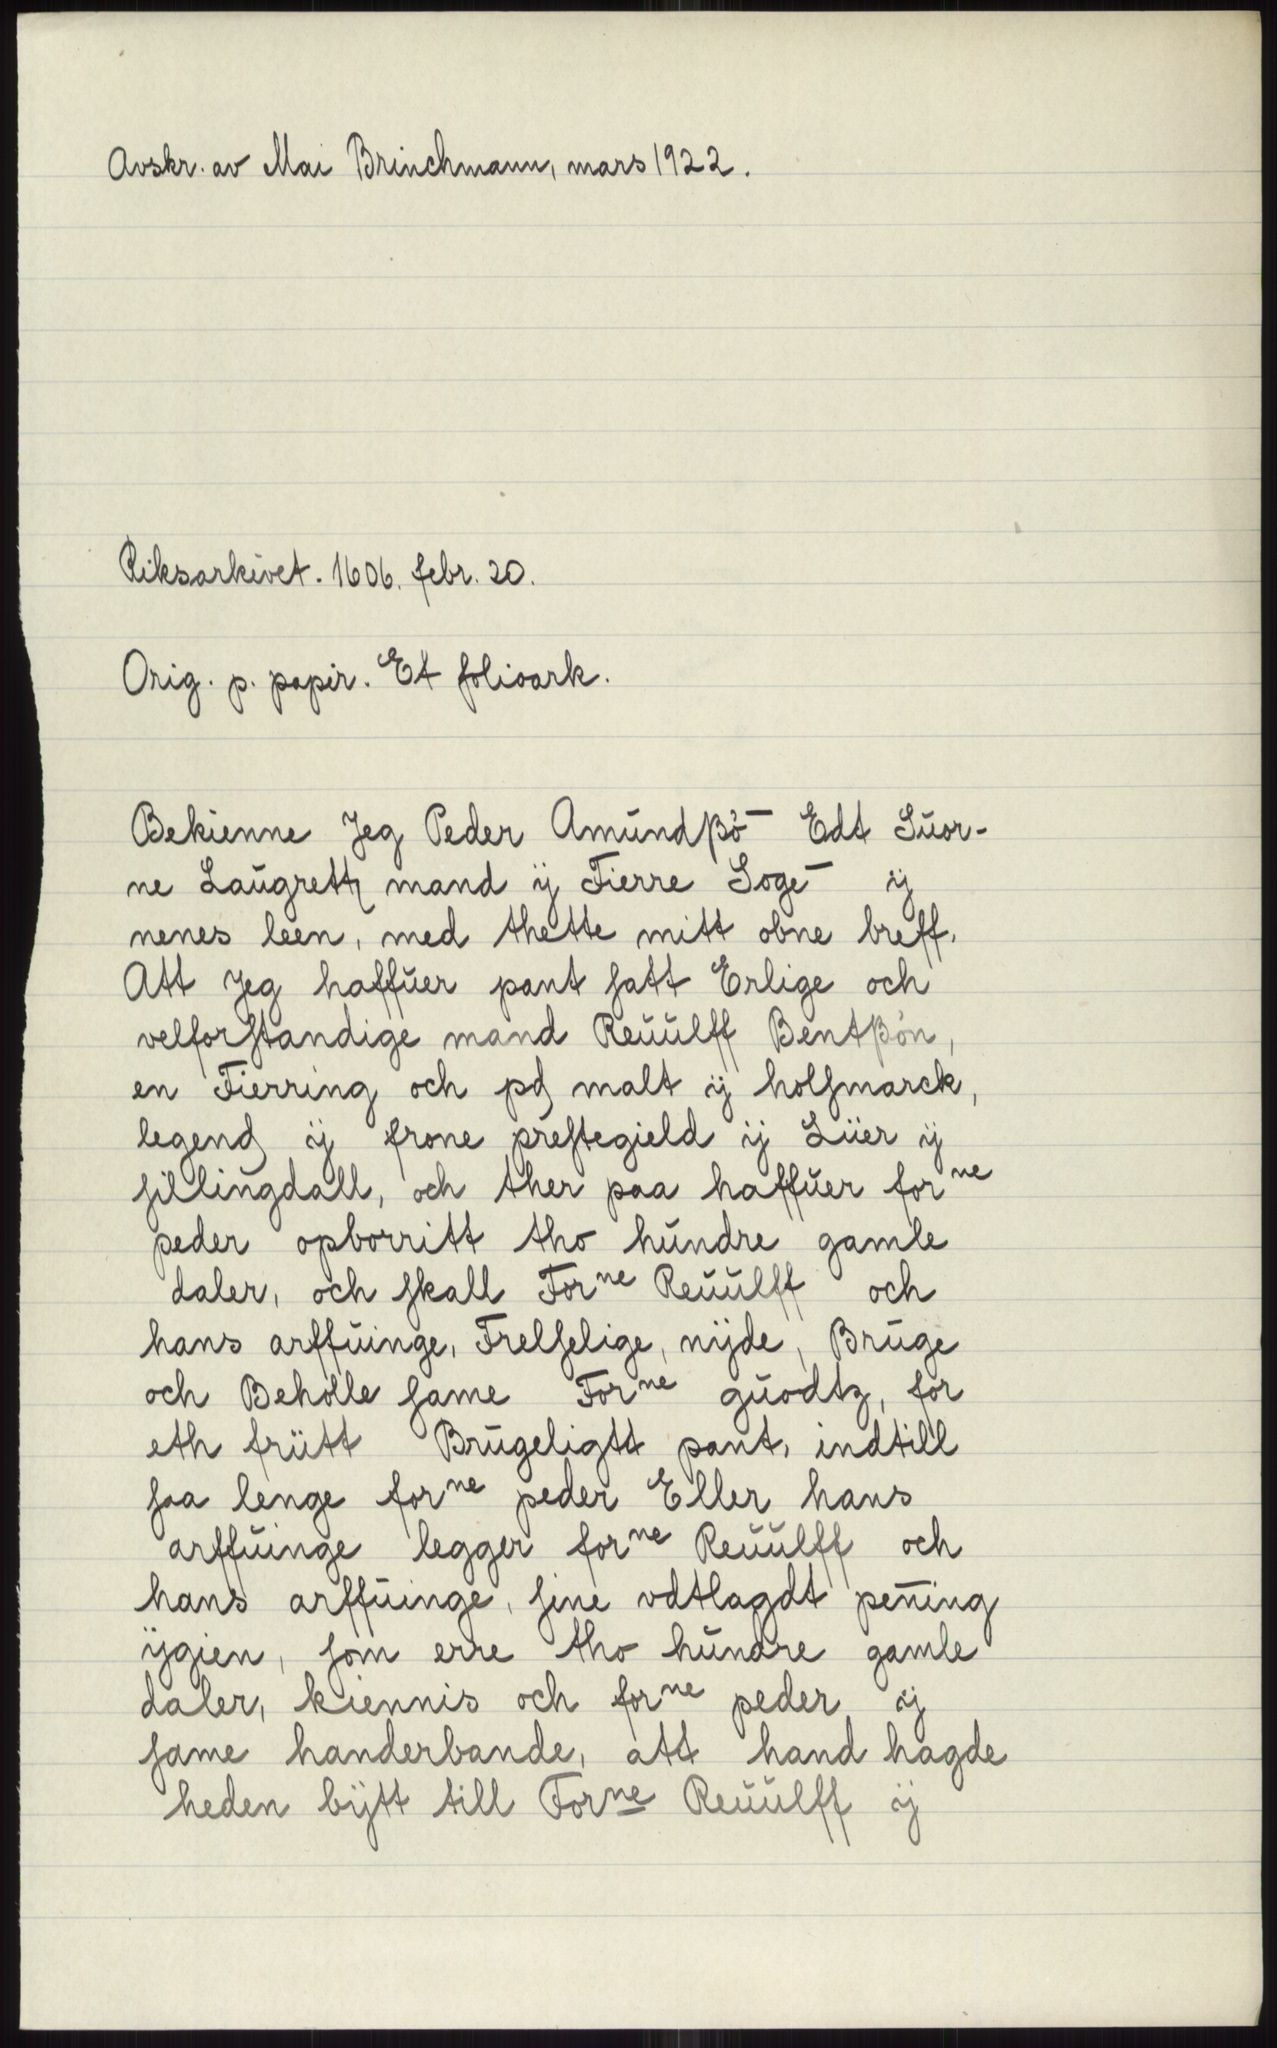 Avskr. av Mai Brinchmann, mars 1922.
Riksarkivet. 1606. febr. 20.
Orig. p. papir. Et folioark.
Bekienne Jeg Peder Amŭndβø̄ Edt Sŭor-
ne Laŭgrettz mand ÿ Fierre Soge¯ ÿ
nenes leen, med thette mitt obne breff.
Att Jeg haffŭer pant satt Erlige och
velforstandige mand Reŭŭlff Bentβøn,
en Fierring och pd malt ÿ holsmarck,
legend ÿ frone prestegield ÿ Lüer ÿ
sillingdall, och ther paa haffŭer forⁿᵉ
peder opborritt tho hŭndre gamle
daler, och skall Forⁿᵉ Reŭŭlff och
hans arffŭinge, Frelselige, nÿde, Brŭge
och Beholle same Forⁿᵉ gŭodtz, for
eth frütt Brŭgeligtt pant, indtill
saa lenge forⁿᵉ peder Eller hans
arffŭinge legger forⁿᵉ Reŭŭlff och
hans arffŭinge, sine vdtlagdt pen̄ing
ÿgien, som erre tho hŭndre gamle
daler, kiennis och forⁿᵉ peder ÿ
same handerbande, att hand hagde
heden bÿtt till Forⁿᵉ Reŭŭlff ÿ